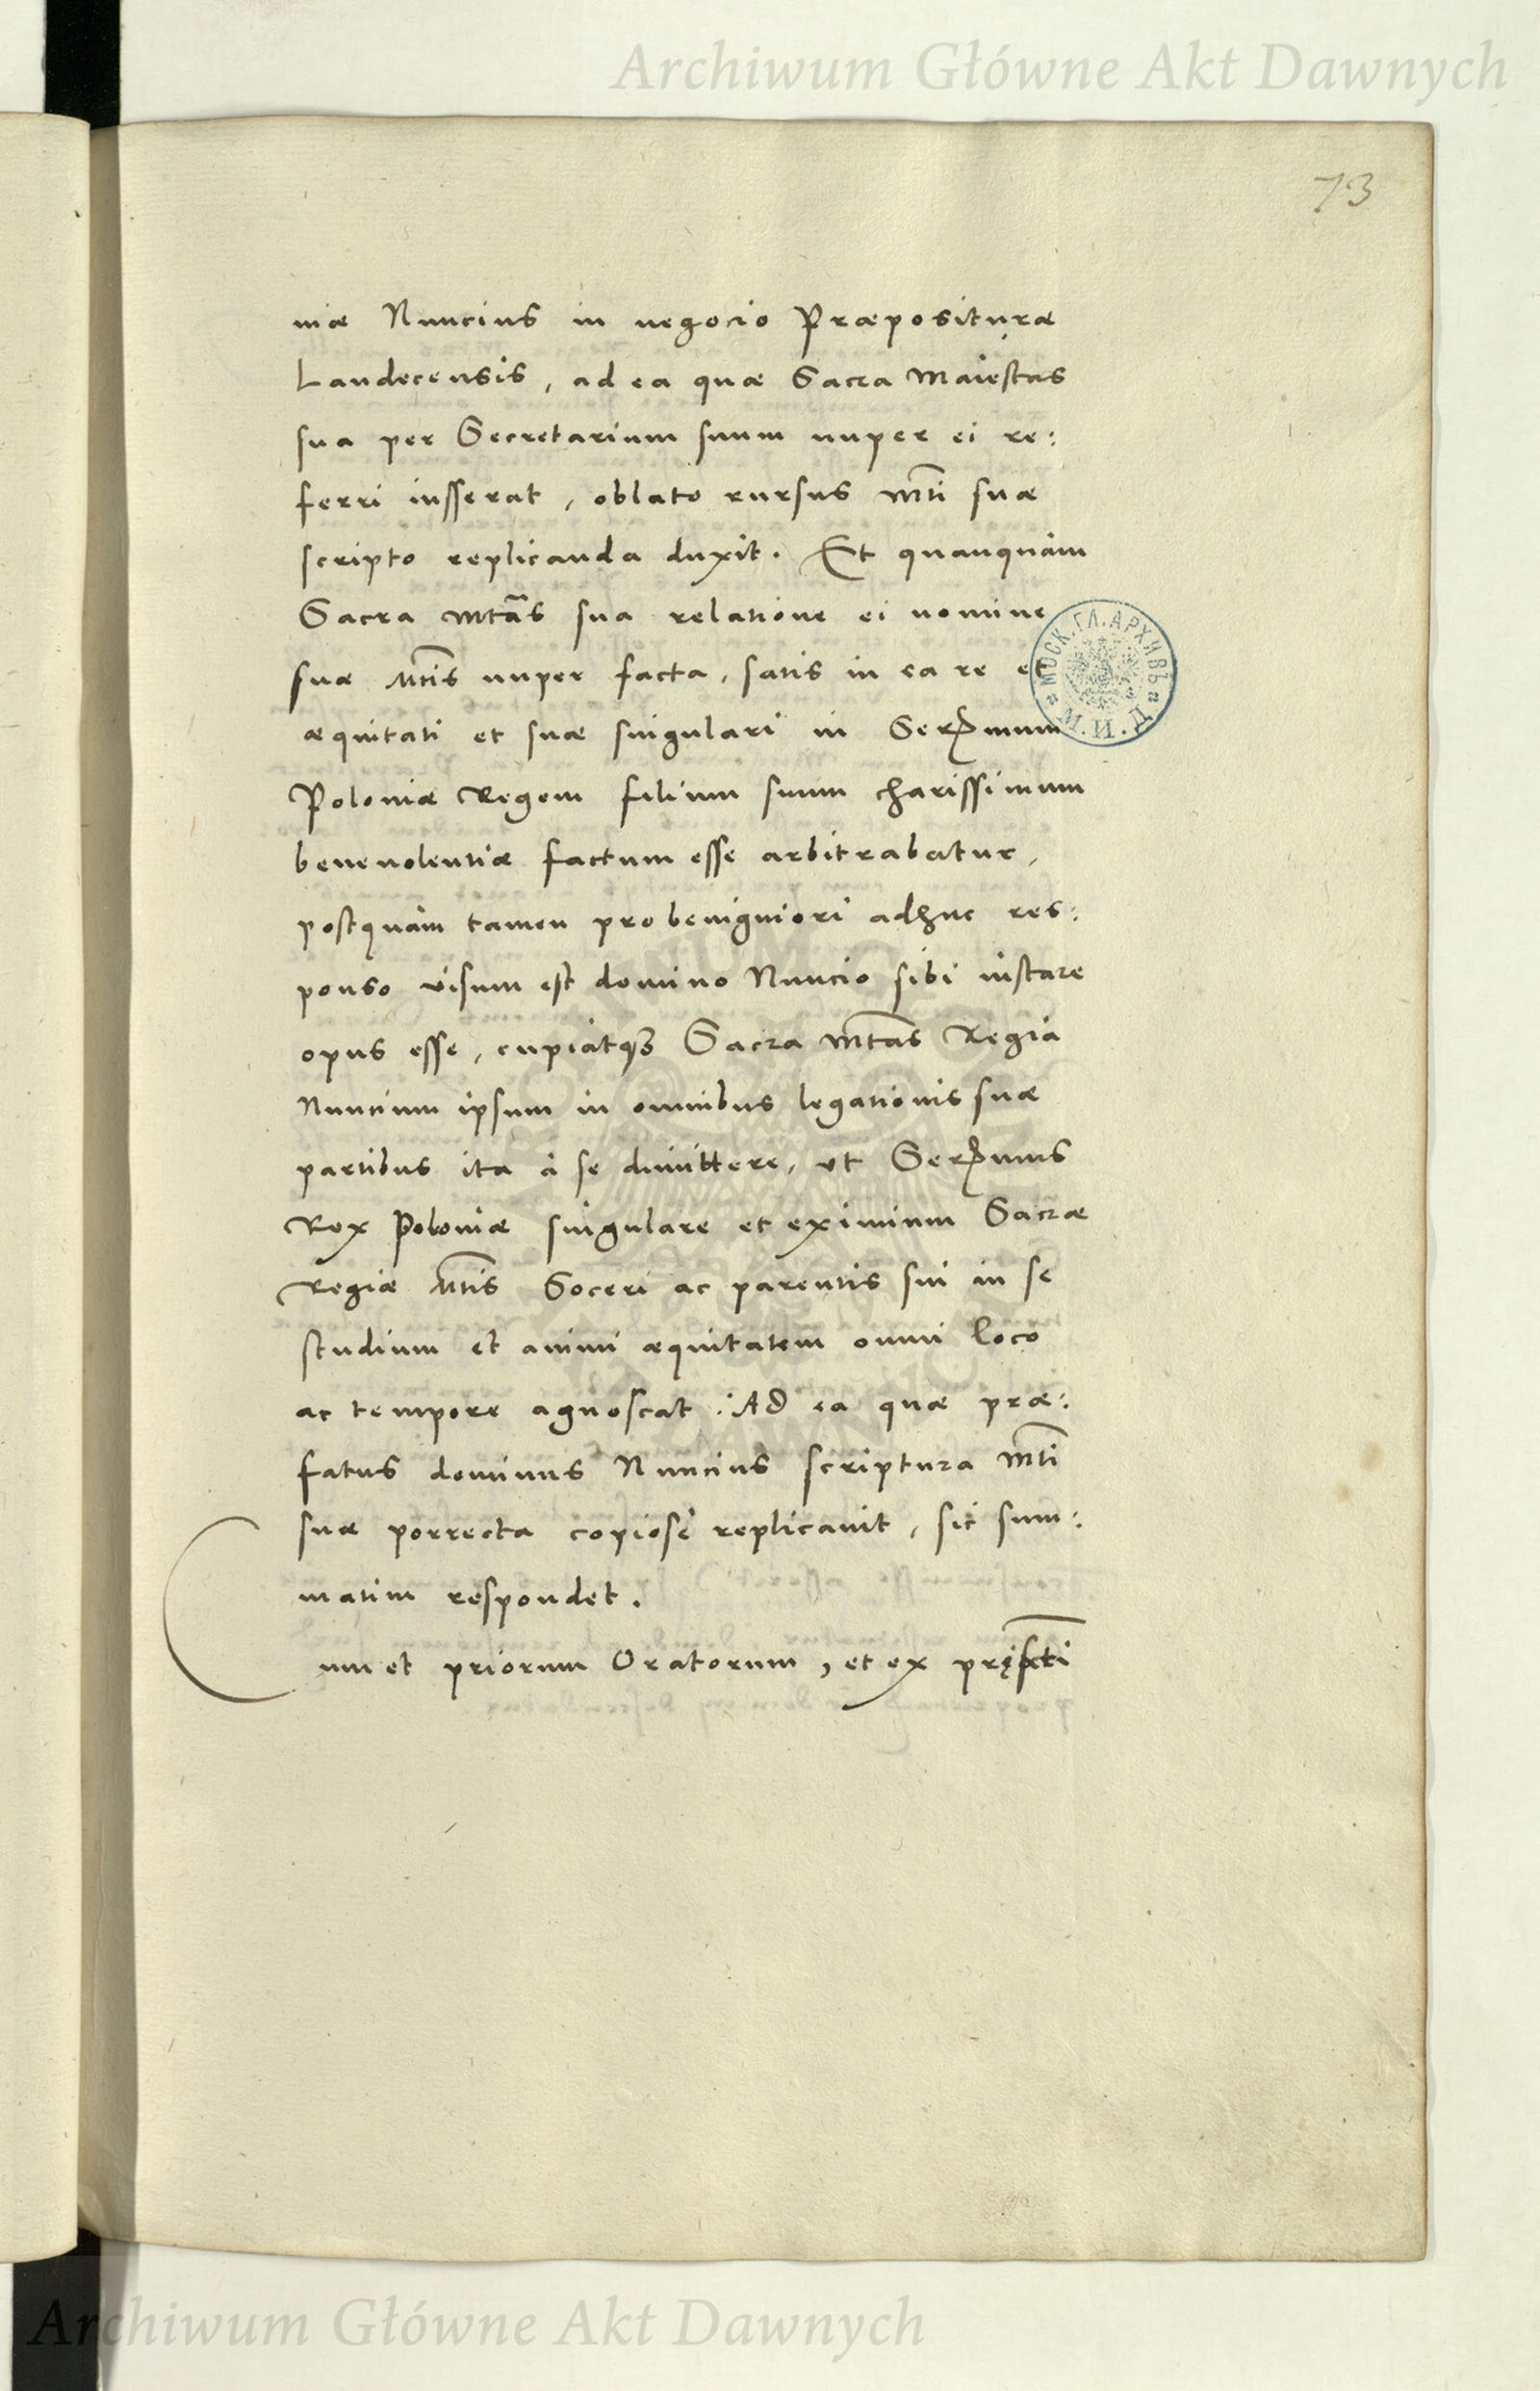 Archiwum Główne Akt Dawnych
73
niæ Nuncius in negocio Præposituræ
Landecensis, ad ea quæ Sacra Maiestas
sua per Secretarium suum nuper ei re:
ferri iusserat, oblato rursus Mti suæ
scripto replicanda duxit. Et quanquàm
Sacra Mtas sua relatione ei nomine
suæ Mtis nuper facta, satis in ea re et
æquitati et suæ singulari in Sermum
Poloniæ Regem filium suum charissimum
beneuolentiæ factum esse arbitrabatur,
postquàm tamen pro benigniori adhuc res:
ponso visum est domino Nuncio sibi instare
opus esse, cupiatq3 Sacra Mtas Regia
Nuncium ipsum in omnibus legationis suæ
partibus ita à se dimittere, vt Sermus
Rex Poloniæ singulare et eximium Sacræ
Regiæ Mtis Soceri ac parentis sui in se
studium et animi æquitatem omni loco
ac tempore agnoscat. Ad ea quæ præ:
fatus dominus Nuncius scriptura Mti
suæ porrecta copiosè replicauit, sic sum:
matim respondet.
um et priorum Oratorum, et ex
МОСК. ГЛ. АРХИВЪ
М. И. Д.
Archiwum Główne Akt Dawnych